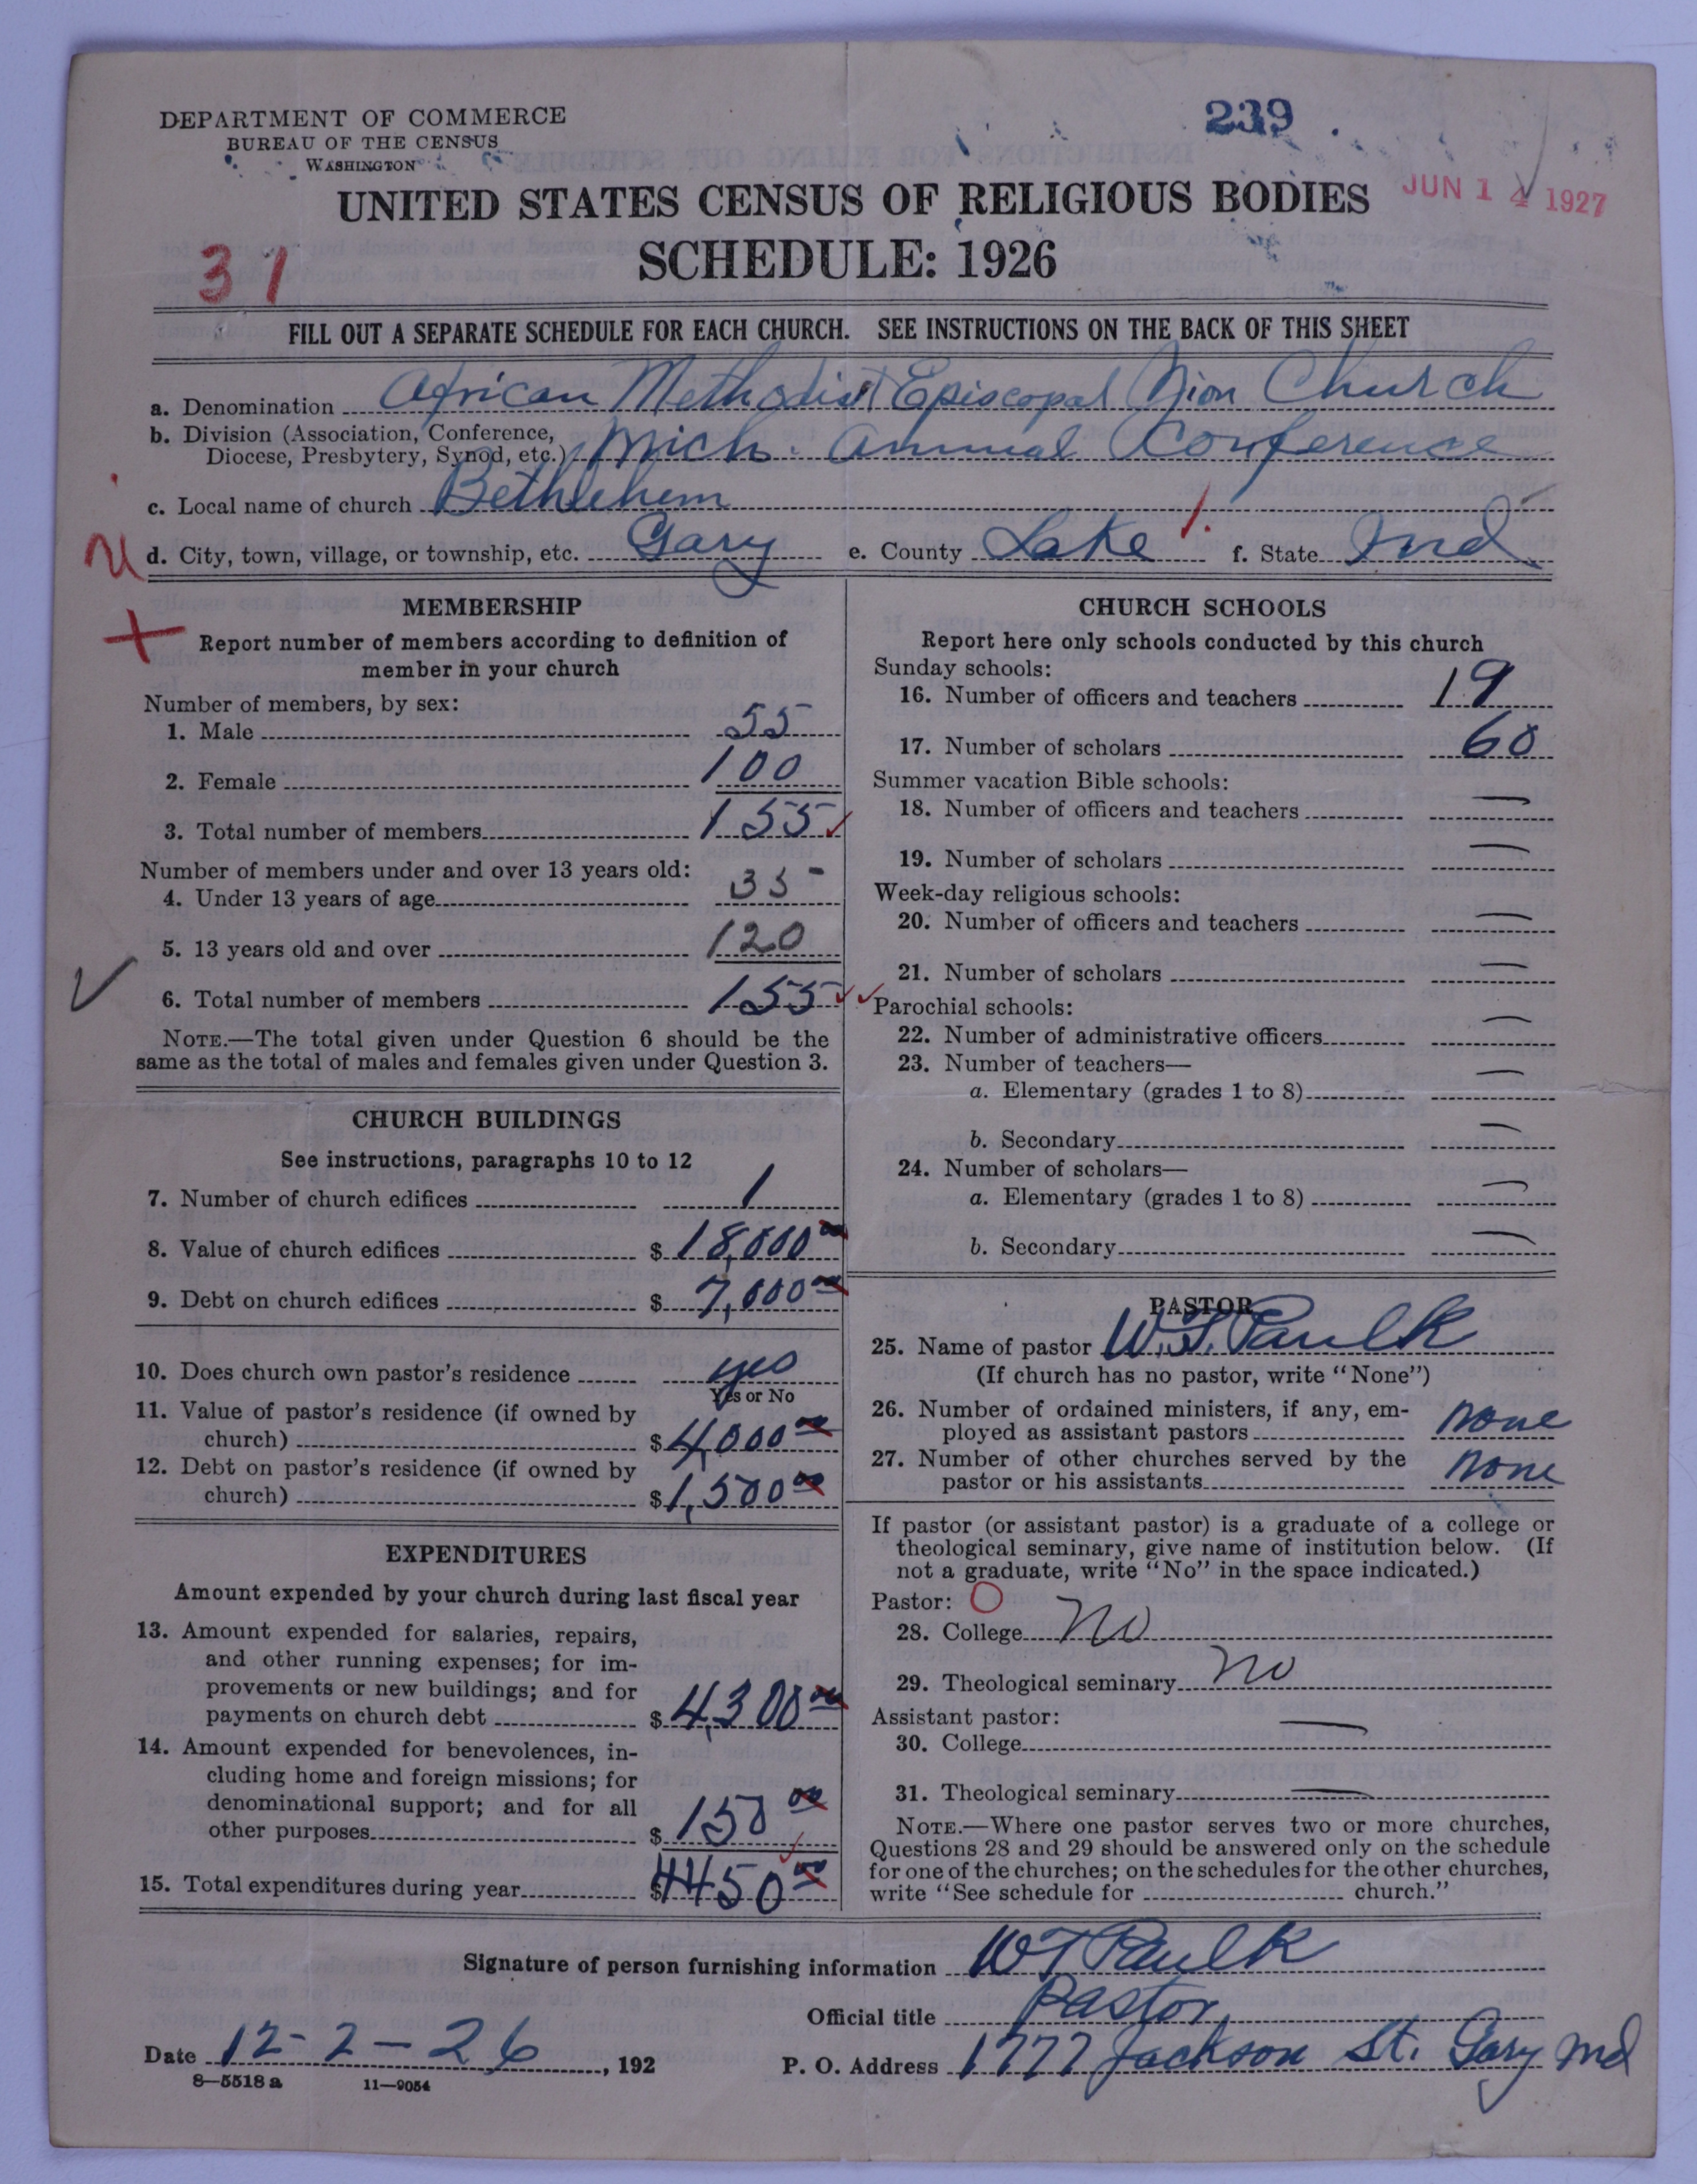 DEPARTMENT OF COMMERCE
BUREAU OF THE CENSUS
WASHINGTON
239
UNITED STATES CENSUS OF RELIGIOUS BODIES
JUN 14 1927
SCHEDULE: 1926
31
FILL OUT A SEPARATE SCHEDULE FOR EACH CHURCH. SEE INSTRUCTIONS ON THE BACK OF THIS SHEET
a. Denomination African Methodist Episcopal Church
b. Division (Association, Conference,
Diocese, Presbytery, Synod, etc.) Mich. Annual Conference
c. Local name of church Bethlehem
d. City, town, village, or township, etc. Gary e. County Lake f. State Ind
MEMBERSHIP
Report number of members according to definition of
member in your church
Number of members, by sex:
1. Male 55
2. Female 100
3. Total number of members 155
Number of members under and over 13 years old:
4. Under 13 years of age 35
5. 13 years old and over 120
6. Total number of members 155
NOTE.—The total given under Question 6 should be the
same as the total of males and females given under Question 3.
CHURCH BUILDINGS
See instructions, paragraphs 10 to 12
7. Number of church edifices 1
8. Value of church edifices $ 18,000 00
9. Debt on church edifices $ 7,000 00
10. Does church own pastor's residence yes
Yes or No
11. Value of pastor's residence (if owned by
church) $ 4,000 00
12. Debt on pastor's residence (if owned by
church) $ 1,500 00
EXPENDITURES
Amount expended by your church during last fiscal year
13. Amount expended for salaries, repairs,
and other running expenses; for im-
provements or new buildings; and for
payments on church debt $ 4,300 00
14. Amount expended for benevolences, in-
cluding home and foreign missions; for
denominational support; and for all
other purposes $ 150 00
15. Total expenditures during year $ 4450 00
CHURCH SCHOOLS
Report here only schools conducted by this church
Sunday schools:
16. Number of officers and teachers 19
17. Number of scholars 60
Summer vacation Bible schools:
18. Number of officers and teachers —
19. Number of scholars —
Week-day religious schools:
20. Number of officers and teachers —
21. Number of scholars —
Parochial schools:
22. Number of administrative officers —
23. Number of teachers—
a. Elementary (grades 1 to 8) —
b. Secondary —
24. Number of scholars—
a. Elementary (grades 1 to 8) —
b. Secondary —
PASTOR
25. Name of pastor W. T. Paulk
(If church has no pastor, write "None")
26. Number of ordained ministers, if any, em-
ployed as assistant pastors none
27. Number of other churches served by the
pastor or his assistants none
If pastor (or assistant pastor) is a graduate of a college or
theological seminary, give name of institution below. (If
not a graduate, write "No" in the space indicated.)
Pastor:
28. College no
29. Theological seminary no
Assistant pastor:
30. College —
31. Theological seminary —
NOTE.—Where one pastor serves two or more churches,
Questions 28 and 29 should be answered only on the schedule
for one of the churches; on the schedules for the other churches,
write "See schedule for church."
Signature of person furnishing information W T Paulk
Official title Pastor
Date 12-2-26, 192 P. O. Address 1777 Jackson St. Gary Ind
8—5518 a 11—9054